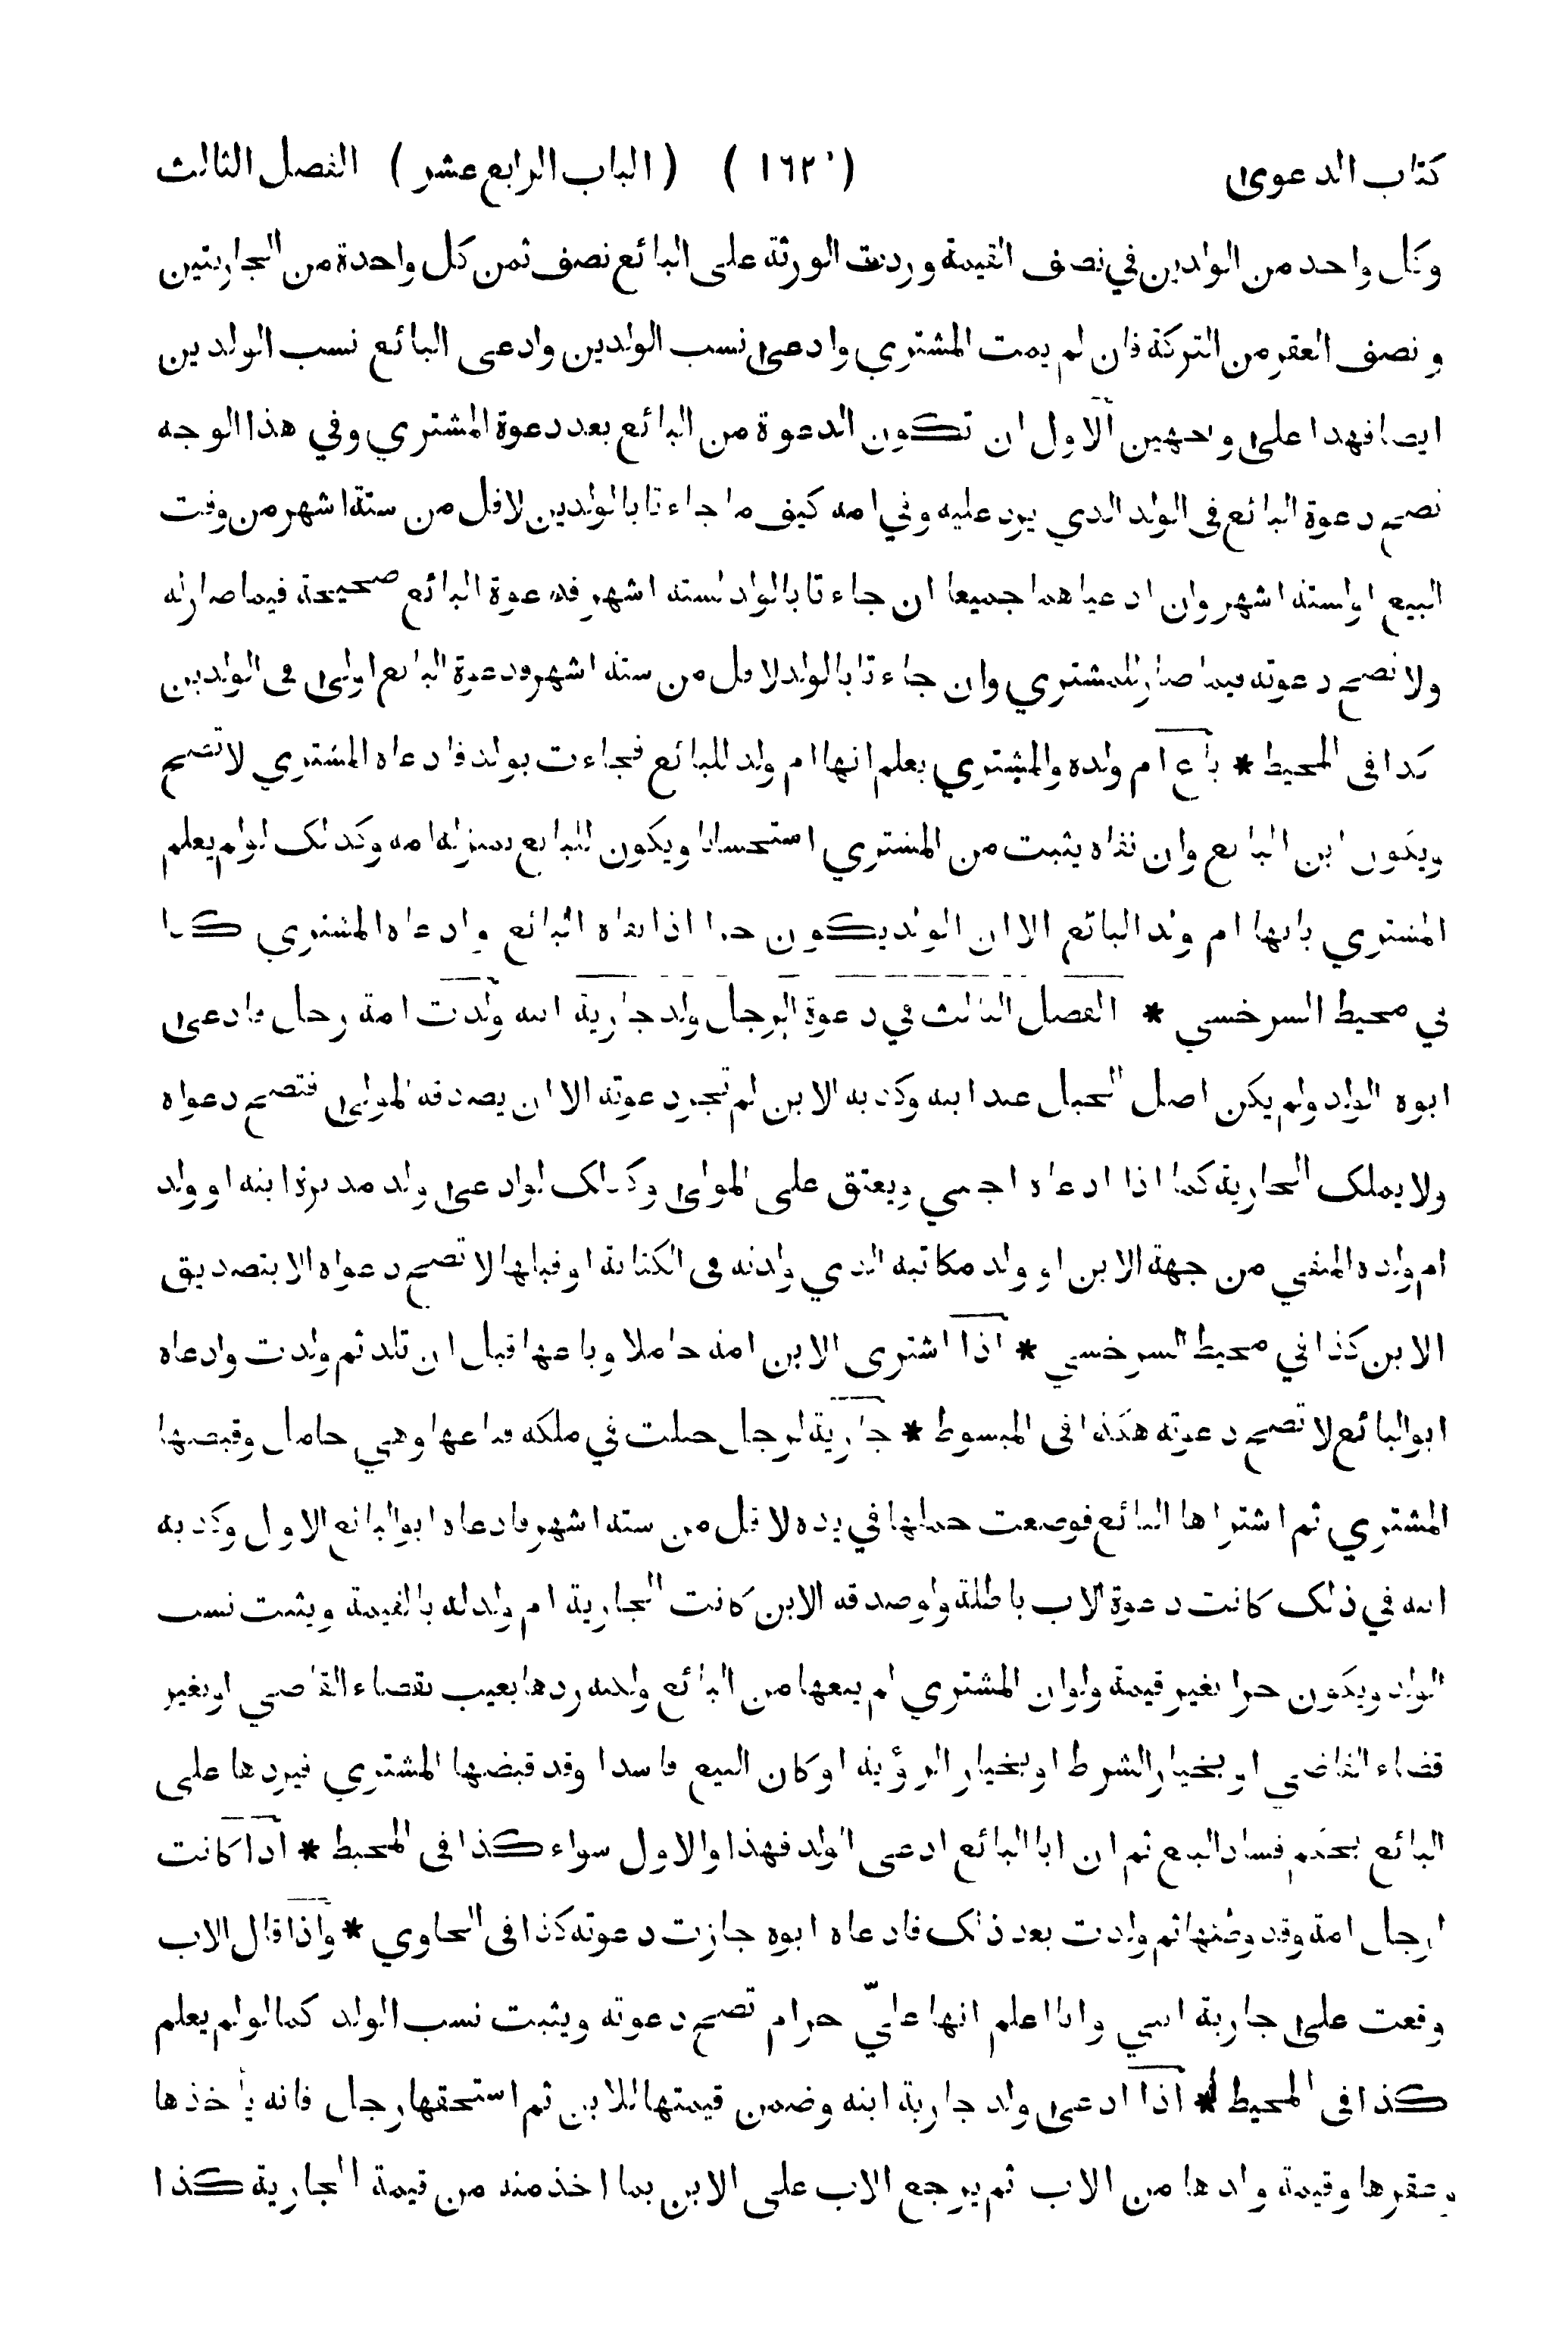 كتاب الدعوى ( ١٦٢ ) ( الباب الرابع عشر ) الفصل الثالث
وكل واحد من الولدين في نصف القيمة وردت الورثة على البائع نصف ثمن كل واحدة من الجاريتين
و نصف العقر من التركة فان لم يمت المشتري وادعى نسب الولدين وادعى البائع نسب الولدين
ايضا فهذا على وجهين الاول ان تكون الدعوة من البائع بعد دعوة المشتري وفي هذا الوجه
تصح دعوة البائع فى الولد الذي يرد عليه وفي امه كيف ما جاءتا بالولدين لاقل من ستة اشهر من وقت
البيع او لستة اشهر وان ادعياهما جميعا ان جاءتا بالولد لستة اشهر فدعوة البائع صحيحة فيما صار له
ولا تصح دعوته فيما صار للمشتري وان جاءتا بالولد لاقل من ستة اشهر ودعوة البائع اولى فى الولدين
كذا فى المحيط * باع ام ولده والمشتري يعلم انها ام ولد للبائع فجاءت بولد فادعاه المشتري لا تصح
ويكون ابن البائع وان نفاه يثبت من المشتري استحسانا ويكون للبائع بمنزلة امه وكذلك لو لم يعلم
المشتري بانها ام ولد البائع الا ان الولد يكون حرا اذا نفاه البائع وادعاه المشتري كذا
في محيط السرخسي * الفصل الثالث في دعوة الرجل ولد جارية ابنه ولدت امة رجل فادعى
ابوه الولد ولم يكن اصل الحبل عند ابنه وكذبه الابن لم تجز دعوته الا ان يصدقه المولى فتصح دعواه
ولا يملك الجارية كما اذا ادعاه اجنبي ويعتق على المولى وكذلك لو ادعى ولد مدبرة ابنه او ولد
ام ولده المنفي من جهة الابن او ولد مكاتبه الذي ولدته فى الكتابة او قبلها لا تصح دعواه الا بتصديق
الابن كذا في محيط السرخسي * اذا اشترى الابن امة حاملا وباعها قبل ان تلد ثم ولدت وادعاه
ابو البائع لا تصح دعوته هكذا فى المبسوط * جارية لرجل حبلت في ملكه فباعها وهي حامل وقبضها
المشتري ثم اشتراها البائع فوضعت حملها في يده لاقل من ستة اشهر فادعاه ابو البائع الاول وكذبه
ابنه في ذلك كانت دعوة الاب باطلة ولو صدقه الابن كانت الجارية ام ولد له بالقيمة ويثبت نسب
الولد ويكون حرا بغير قيمة ولو ان المشتري لم يبعها من البائع ولكنه ردها بعيب بقضاء القاضي او بغير
قضاء القاضي او بخيار الشرط او بخيار الرؤية او كان البيع فاسدا وقد قبضها المشتري فيردها على
البائع بحكم فساد البيع ثم ان ابا البائع ادعى الولد فهذا والاول سواء كذا فى المحيط * اذا كانت
لرجل امة وقد وطئها ثم ولدت بعد ذلك فادعاه ابوه جازت دعوته كذا فى الحاوي * واذا قال الاب
وقعت على جارية ابني وانا اعلم انها عليّ حرام تصح دعوته ويثبت نسب الولد كما لو لم يعلم
كذا فى المحيط * اذا ادعى ولد جارية ابنه وضمن قيمتها للابن ثم استحقها رجل فانه يأخذها
وعقرها وقيمة ولدها من الاب ثم يرجع الاب على الابن بما اخذ منه من قيمة الجارية كذا